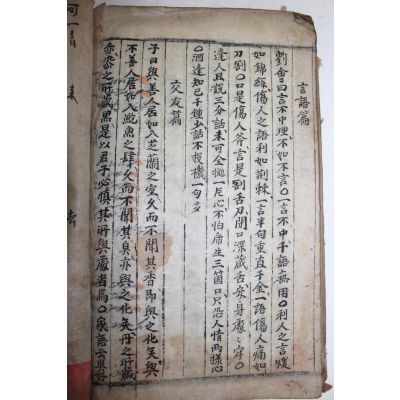 言語篇
劉會曰言不中理不如不言○一言不中千語無用○利人之言煖
如綿絲傷人之語利如荊棘一言半句重直千金一語傷人痛如
刀割○口是傷人斧言是割舌刀閉口深藏舌安身處處字○
逢人且說三分話未可全抛一片心不怕虎生三箇口只恐人情兩樣心
○酒逢知己千鍾少話不投機一句多
交友篇
子曰與善人居如入芝蘭之室久而不聞其香即與之化矣與
不善人居如入鮑魚之肆久而不聞其臭亦與之化矣丹之所藏
赤漆之所藏黑是以君子必愼其所與處者焉○家語云與好